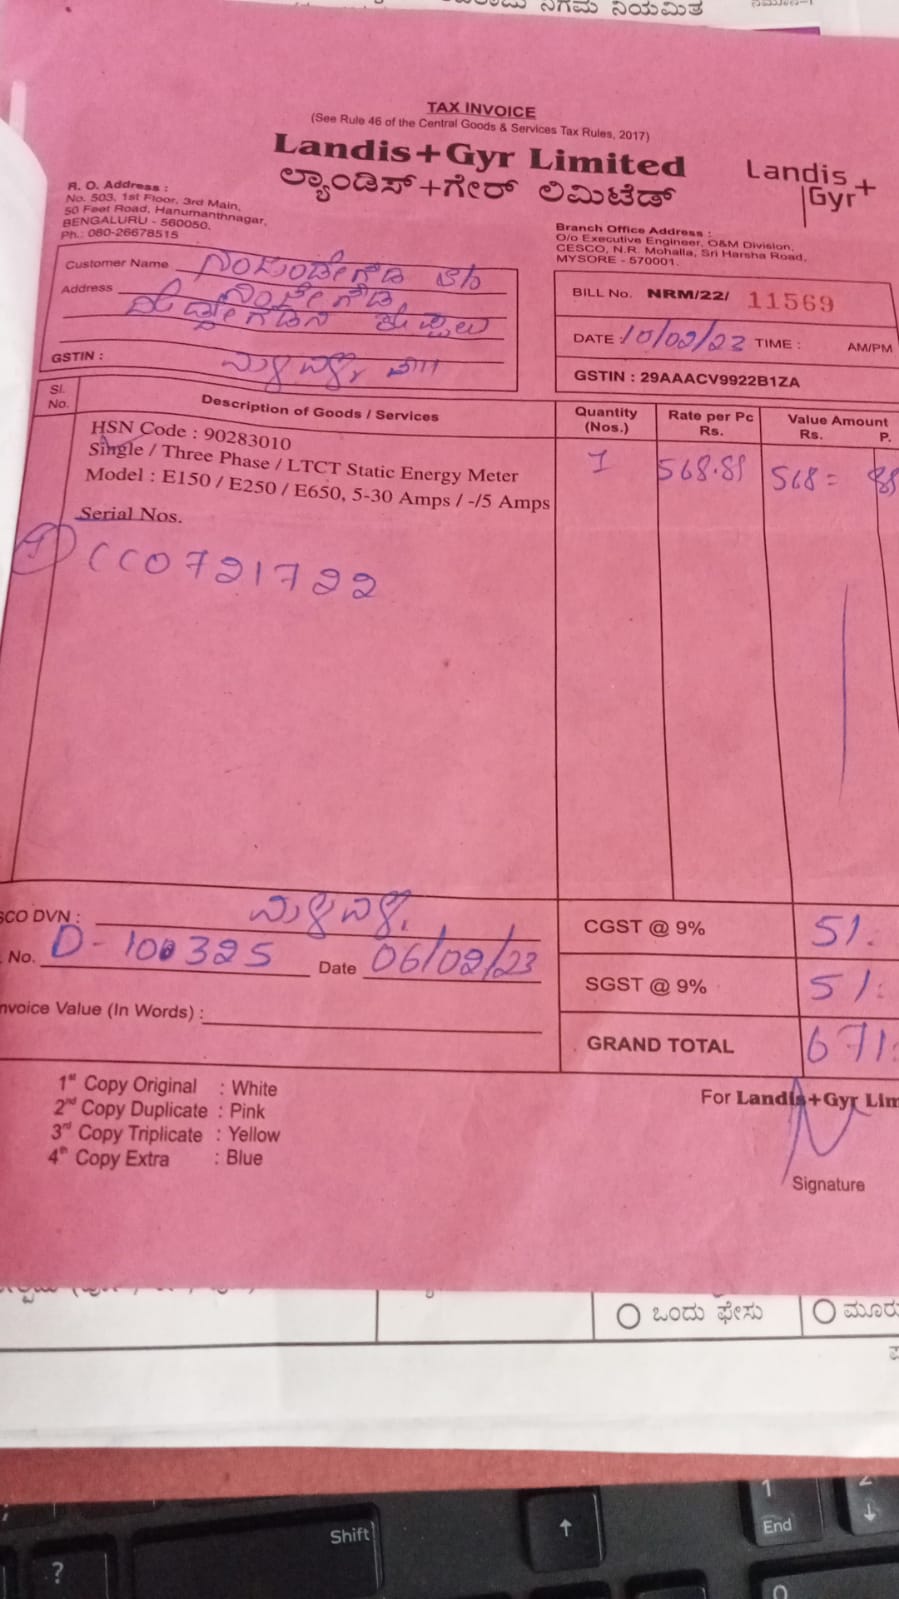 ನಿಗಮ ನಿಯಮಿತ
TAX INVOICE
(See Rule 46 of the Central Goods & Services Tax Rules, 2017)
Landis+Gyr Limited
ಲ್ಯಾಂಡಿಸ್+ಗೇರ್ ಲಿಮಿಟೆಡ್
Landis
Gyr+
R. O. Address :
No. 503, 1st Floor, 3rd Main,
50 Feet Road, Hanumanthnagar,
BENGALURU - 560050.
Ph.: 080-26678515
Branch Office Address :
O/o Executive Engineer, O&M Division,
CESCO, N.R. Mohalla, Sri Harsha Road,
MYSORE - 570001.
Customer Name
Address
GSTIN :
BILL No. NRM/22/ 11569
DATE : 10/02/23 TIME : AM/PM
GSTIN : 29AAACV9922B1ZA
Sl. No. Description of Goods / Services Quantity (Nos.) Rate per Pc Rs. Value Amount Rs. P.
HSN Code : 90283010
Single / Three Phase / LTCT Static Energy Meter 1 568.89 568= 89
Model : E150 / E250 / E650, 5-30 Amps / -/5 Amps
Serial Nos.
1 CC0721722
SCO DVN : ಮಳವಳ್ಳಿ
. No. D-100325 Date 06/02/23
nvoice Value (In Words) :
CGST @ 9% 51.
SGST @ 9% 51.
GRAND TOTAL 671.
1st Copy Original : White
2nd Copy Duplicate : Pink
3rd Copy Triplicate : Yellow
4th Copy Extra : Blue
For Landis+Gyr Lim
Signature
ಒಂದು ಫೇಸು
ಮೂರು
Shift
↑
1
End
2
↓
?
0